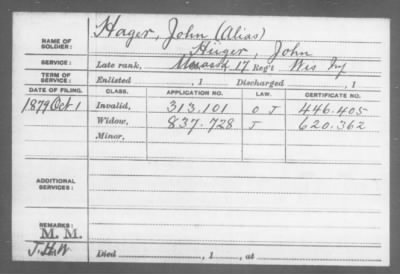 NAME OF SOLDIER: Hager, John (Alias)
Hüger, John
SERVICE: Late rank, 17 Reg't Wis Inf
TERM OF SERVICE: Enlisted , 1 Discharged , 1
DATE OF FILING. CLASS. APPLICATION NO. LAW. CERTIFICATE NO.
1879 Oct 1 Invalid, 313.101 O J 446.405
Widow, 837.728 J 620.362
Minor,
ADDITIONAL SERVICES:
REMARKS:
M. M.
J.H.W. Died , 1 , at